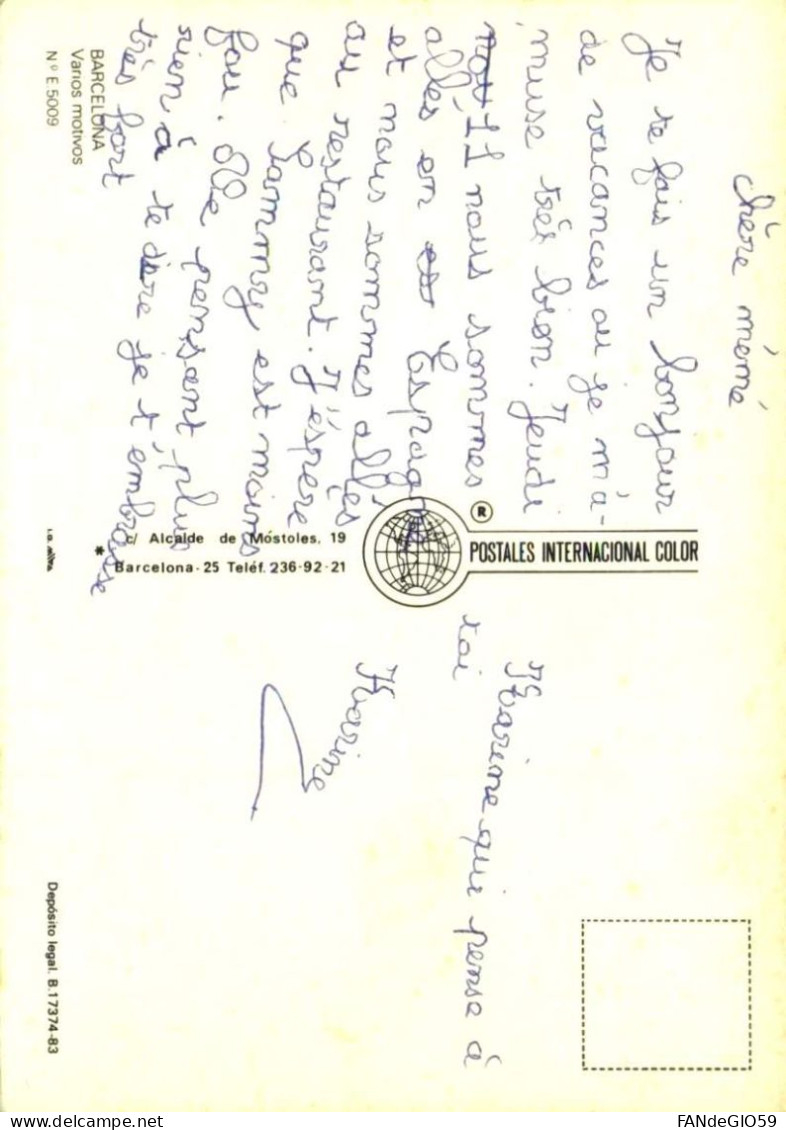 chère mémé
Je te fais un bonjour
de vacances ou je m'a-
muse très bien. Jeudi
11 nous sommes
allés en Espagne
et nous sommes allés
au restaurant. J'éspère
que Sammy est moins
fou. Ne pensant plus
rien à te dire je t'embrasse
très fort
Karine qui pense à
toi
Karine
BARCELONA
Varios motivos
N.º E 5009
POSTALES INTERNACIONAL COLOR
®
c/ Alcalde de Móstoles, 19
Barcelona - 25 Teléf. 236-92-21
*
Depósito legal. B.17374-83
FANdeGIO59